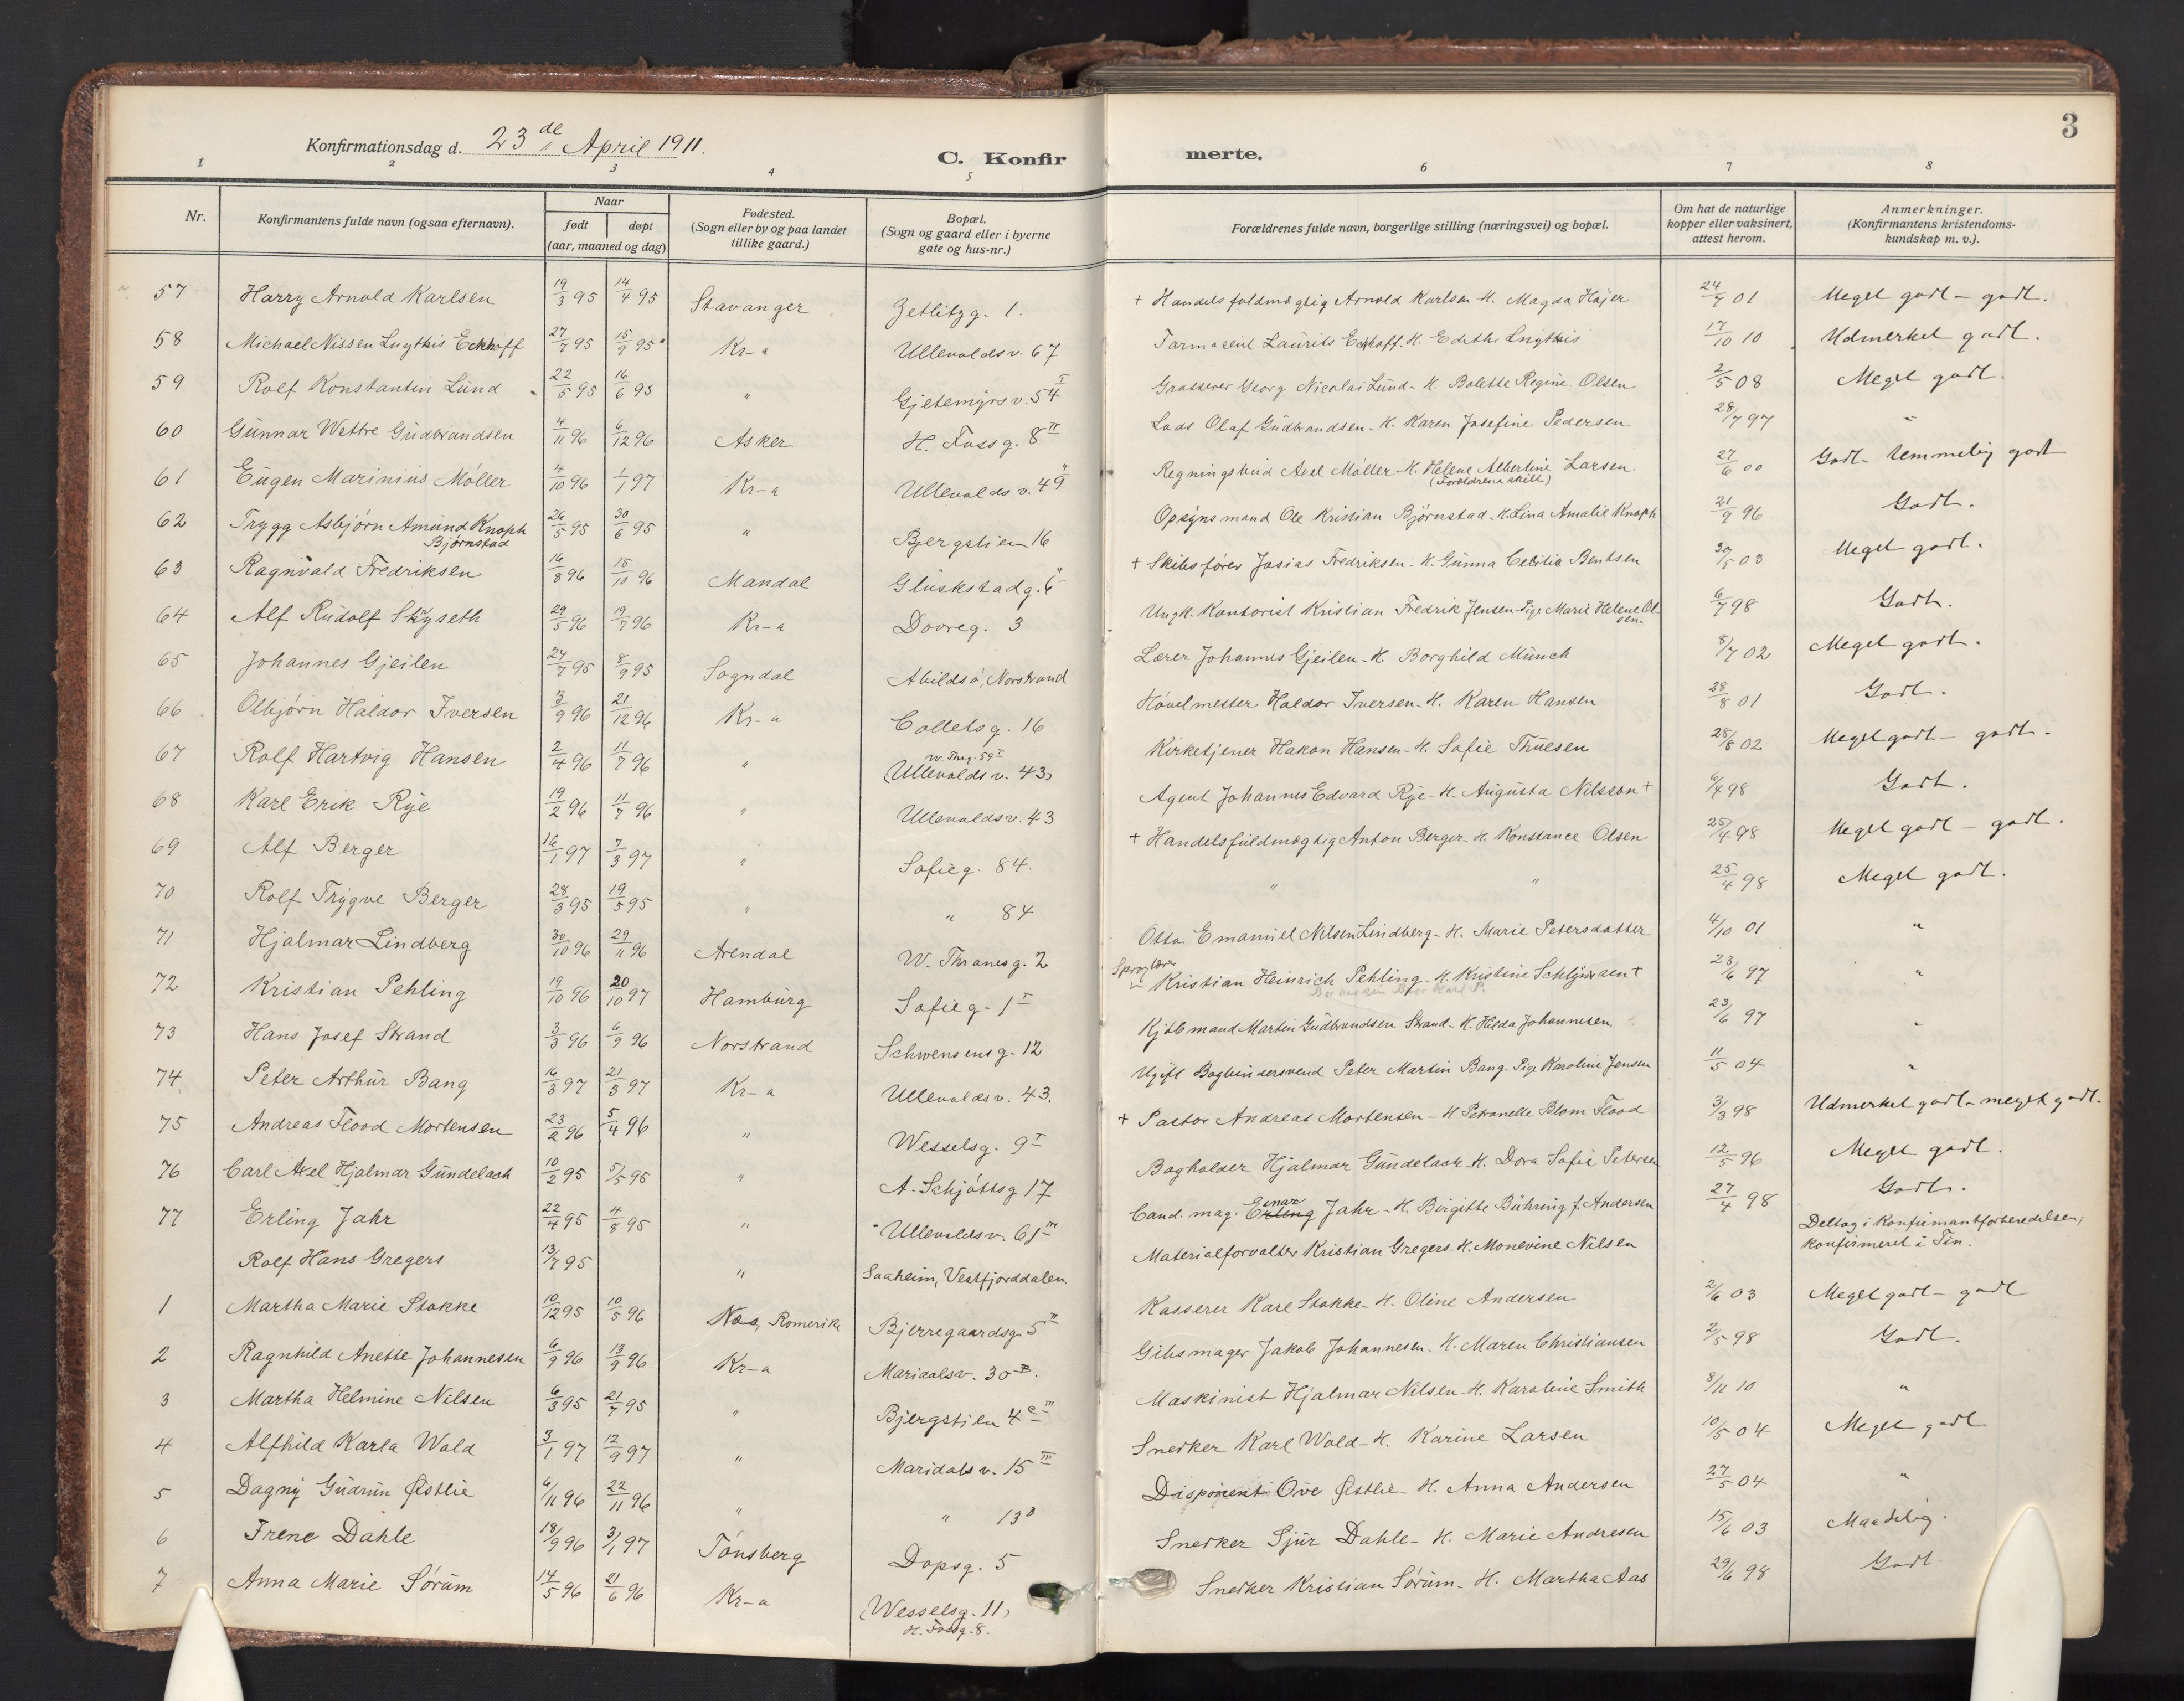 3
Konfirmationsdag d. 23de April 1911.
C. Konfir merte.
1 2 3 4 5 6 7 8
Nr.
Konfirmantens fulde navn (ogsaa efternavn).
Naar
født
døpt
(aar, maaned og dag)
Fødested.
(Sogn eller by og paa landet
tillike gaard.)
Bopæl.
(Sogn og gaard eller i byerne
gate og hus-nr.)
Forældrenes fulde navn, borgerlige stilling (næringsvei) og bopæl.
Om hat de naturlige
kopper eller vaksinert,
attest herom.
Anmerkninger.
(Konfirmantens kristendoms-
kundskap m. v.).
57 Harry Arnold Karlsen 19/3 95 14/4 95 Stavanger Zetlitzg. 1. + Handelsfuldmægtig Arnold Karlsen - H. Magda Højer 24/7 01 Meget godt - godt.
58 Michael Nissen Lugthis Eckhoff 27/7 95 15/9 95 Kr-a Ullevoldsv. 67 Farmaceut Laurits Eckhoff - H. Edith Lugthis 17/10 10 Udmerket godt.
59 Rolf Konstantin Lund 22/5 95 16/6 95 " Gjetemyrsv. 54 I Grosserer Georg Nicolai Lund - H. Bolette Regine Olsen 2/5 08 Meget godt.
60 Gunnar Wettre Gudbrandsen 4/11 96 6/12 96 Asker H. Fossg. 8 II Lods Olaf Gudbrandsen - H. Karen Josefine Pedersen 28/7 97 "
61 Eugen Marinius Møller 4/10 96 1/1 97 Kr-a Ullevoldsv. 49 II Regningsbud Axel Møller - H. Helene Albertine Larsen. (Forældrene skilt) 27/6 00 Godt - temmelig godt
62 Trygg Asbjørn Amund Knoph Bjørnstad 26/5 95 30/6 95 " Bjergstien 16 Opsynsmand Ole Kristian Bjørnstad - H. Lina Amalie Knoph 21/9 96 Godt.
63 Ragnvald Fredriksen 16/8 96 15/10 96 Mandal Glückstadg. 6 II + Skibsfører Josias Fredriksen - H. Gunna Cecilia Bentsen 30/5 03 Meget godt.
64 Alf Rudolf Skyseth 29/5 96 19/7 96 Kr-a Dovreg. 3 Ungk. Kontorist Kristian Fredrik Jensen - Pige Marie Helene Olsen. 6/7 98 Godt.
65 Johannes Gjeilen 24/7 95 8/9 95 Sogndal Abildsø, Norstrand Lærer Johannes Gjeilen - H. Borghild Münch 8/7 02 Meget godt.
66 Olbjørn Haldor Iversen 3/9 96 21/12 96 Kr-a Colletsg. 16 Høvelmester Haldor Iversen - H. Karen Hansen 28/8 01 Godt.
67 Rolf Hartvig Hansen 2/4 96 11/7 96 " W. Thrg. 59 I (Ullevoldsv. 43) Kirketjener Hakon Hansen - H. Sofie Thuesen 28/8 02 Meget godt - godt.
68 Karl Erik Rye 19/2 96 11/7 96 " Ullevoldsv. 43 Agent Johannes Edvard Rye - H. Augusta Nilsson + 6/4 98 Godt.
69 Alf Berger 16/1 97 7/3 97 " Sofieg. 84. + Handelsfuldmægtig Anton Berger - H. Konstance Olsen 25/4 98 Meget godt - godt.
70 Rolf Trygve Berger 28/3 95 19/5 95 " " 84 " " 25/4 98 Meget godt.
71 Hjalmar Lindberg 30/10 96 29/11 96 Arendal W. Thranesg. 2 Otto Emanuel Nilsen Lindberg - H. Marie Petersdatter 4/10 01 "
72 Kristian Pehling 19/10 96 20/10 97 Hamburg Sofieg. 1 I Sproglærer Kristian Heinrich Pehling - H. Kristine + 23/6 97 "
73 Hans Josef Strand 3/3 96 6/9 96 Norstrand Schwensensg. 12 Kjøbmand Martin Gudbrandsen Strand - H. Hilda Johannesen 23/6 97 "
74 Peter Arthur Bang 16/3 97 21/3 97 Kr-a Ullevoldsv. 43. Ugift Bogbindersvend Peter Martin Bang - Pige Karoline Jensen 11/5 04 "
75 Andreas Flood Mortensen 23/2 96 5/4 96 " Wesselsg. 9 I + Pastor Andreas Mortensen - H. Petronelle Blom Flood 3/3 98 Udmerket godt - meget godt.
76 Carl Axel Hjalmar Gundelach 10/2 95 5/5 95 " A. Schjøttsg 17 Bogholder Hjalmar Gundelach - H. Dora Sofie Petersen 12/5 96 Meget godt.
77 Erling Jahr 22/4 95 4/8 95 " Ullevoldsv. 61 III Cand. mag. Einar Jahr - H. Birgitte Bühring f. Andersen 27/4 98 Godt.
Rolf Hans Gregers 13/7 95 " Saaheim, Vestfjorddalen Materialforvalter Kristian Gregers - H. Monevine Nilsen Deltog i Konfirmantforberedelsen; konfirmeret i Tin.
1 Martha Marie Stokke 10/12 95 10/5 96 Nes, Romerike Bjerregaardsg. 5 II Kasserer Kare Stokke - H. Oline Andersen 2/6 03 Meget godt - godt
2 Ragnhild Anette Johannesen 6/9 96 13/9 96 Kr-a Maridalsv. 30 Gibsmager Jakob Johannesen - H. Maren Christiansen 2/5 98 Godt.
3 Martha Helmine Nilsen 6/3 95 21/7 95 " Bjergstien 4 c III Maskinist Hjalmar Nilsen - H. Karoline Smith 8/11 10 "
4 Alfhild Karla Wold 3/1 97 12/9 97 " Maridalsv. 15 III Snedker Karl Wold - H. Karine Larsen 10/5 04 Meget godt
5 Dagny Gudrun Østlie 6/11 96 22/11 96 " " 13 b Disponent Ove Østlie - H. Anna Andersen 27/5 04 "
6 Irene Dahle 18/9 96 3/1 97 Tønsberg Dopsg. 5 Snedker Sjur Dahle - H. Marie Andresen 15/6 03 Maadelig.
7 Anna Marie Sørum 14/5 96 21/6 96 Kr-a (Wesselsg. 11) H. Fossg. 8. Snedker Kristian Sørum - H. Martha Aas 29/6 98 Godt